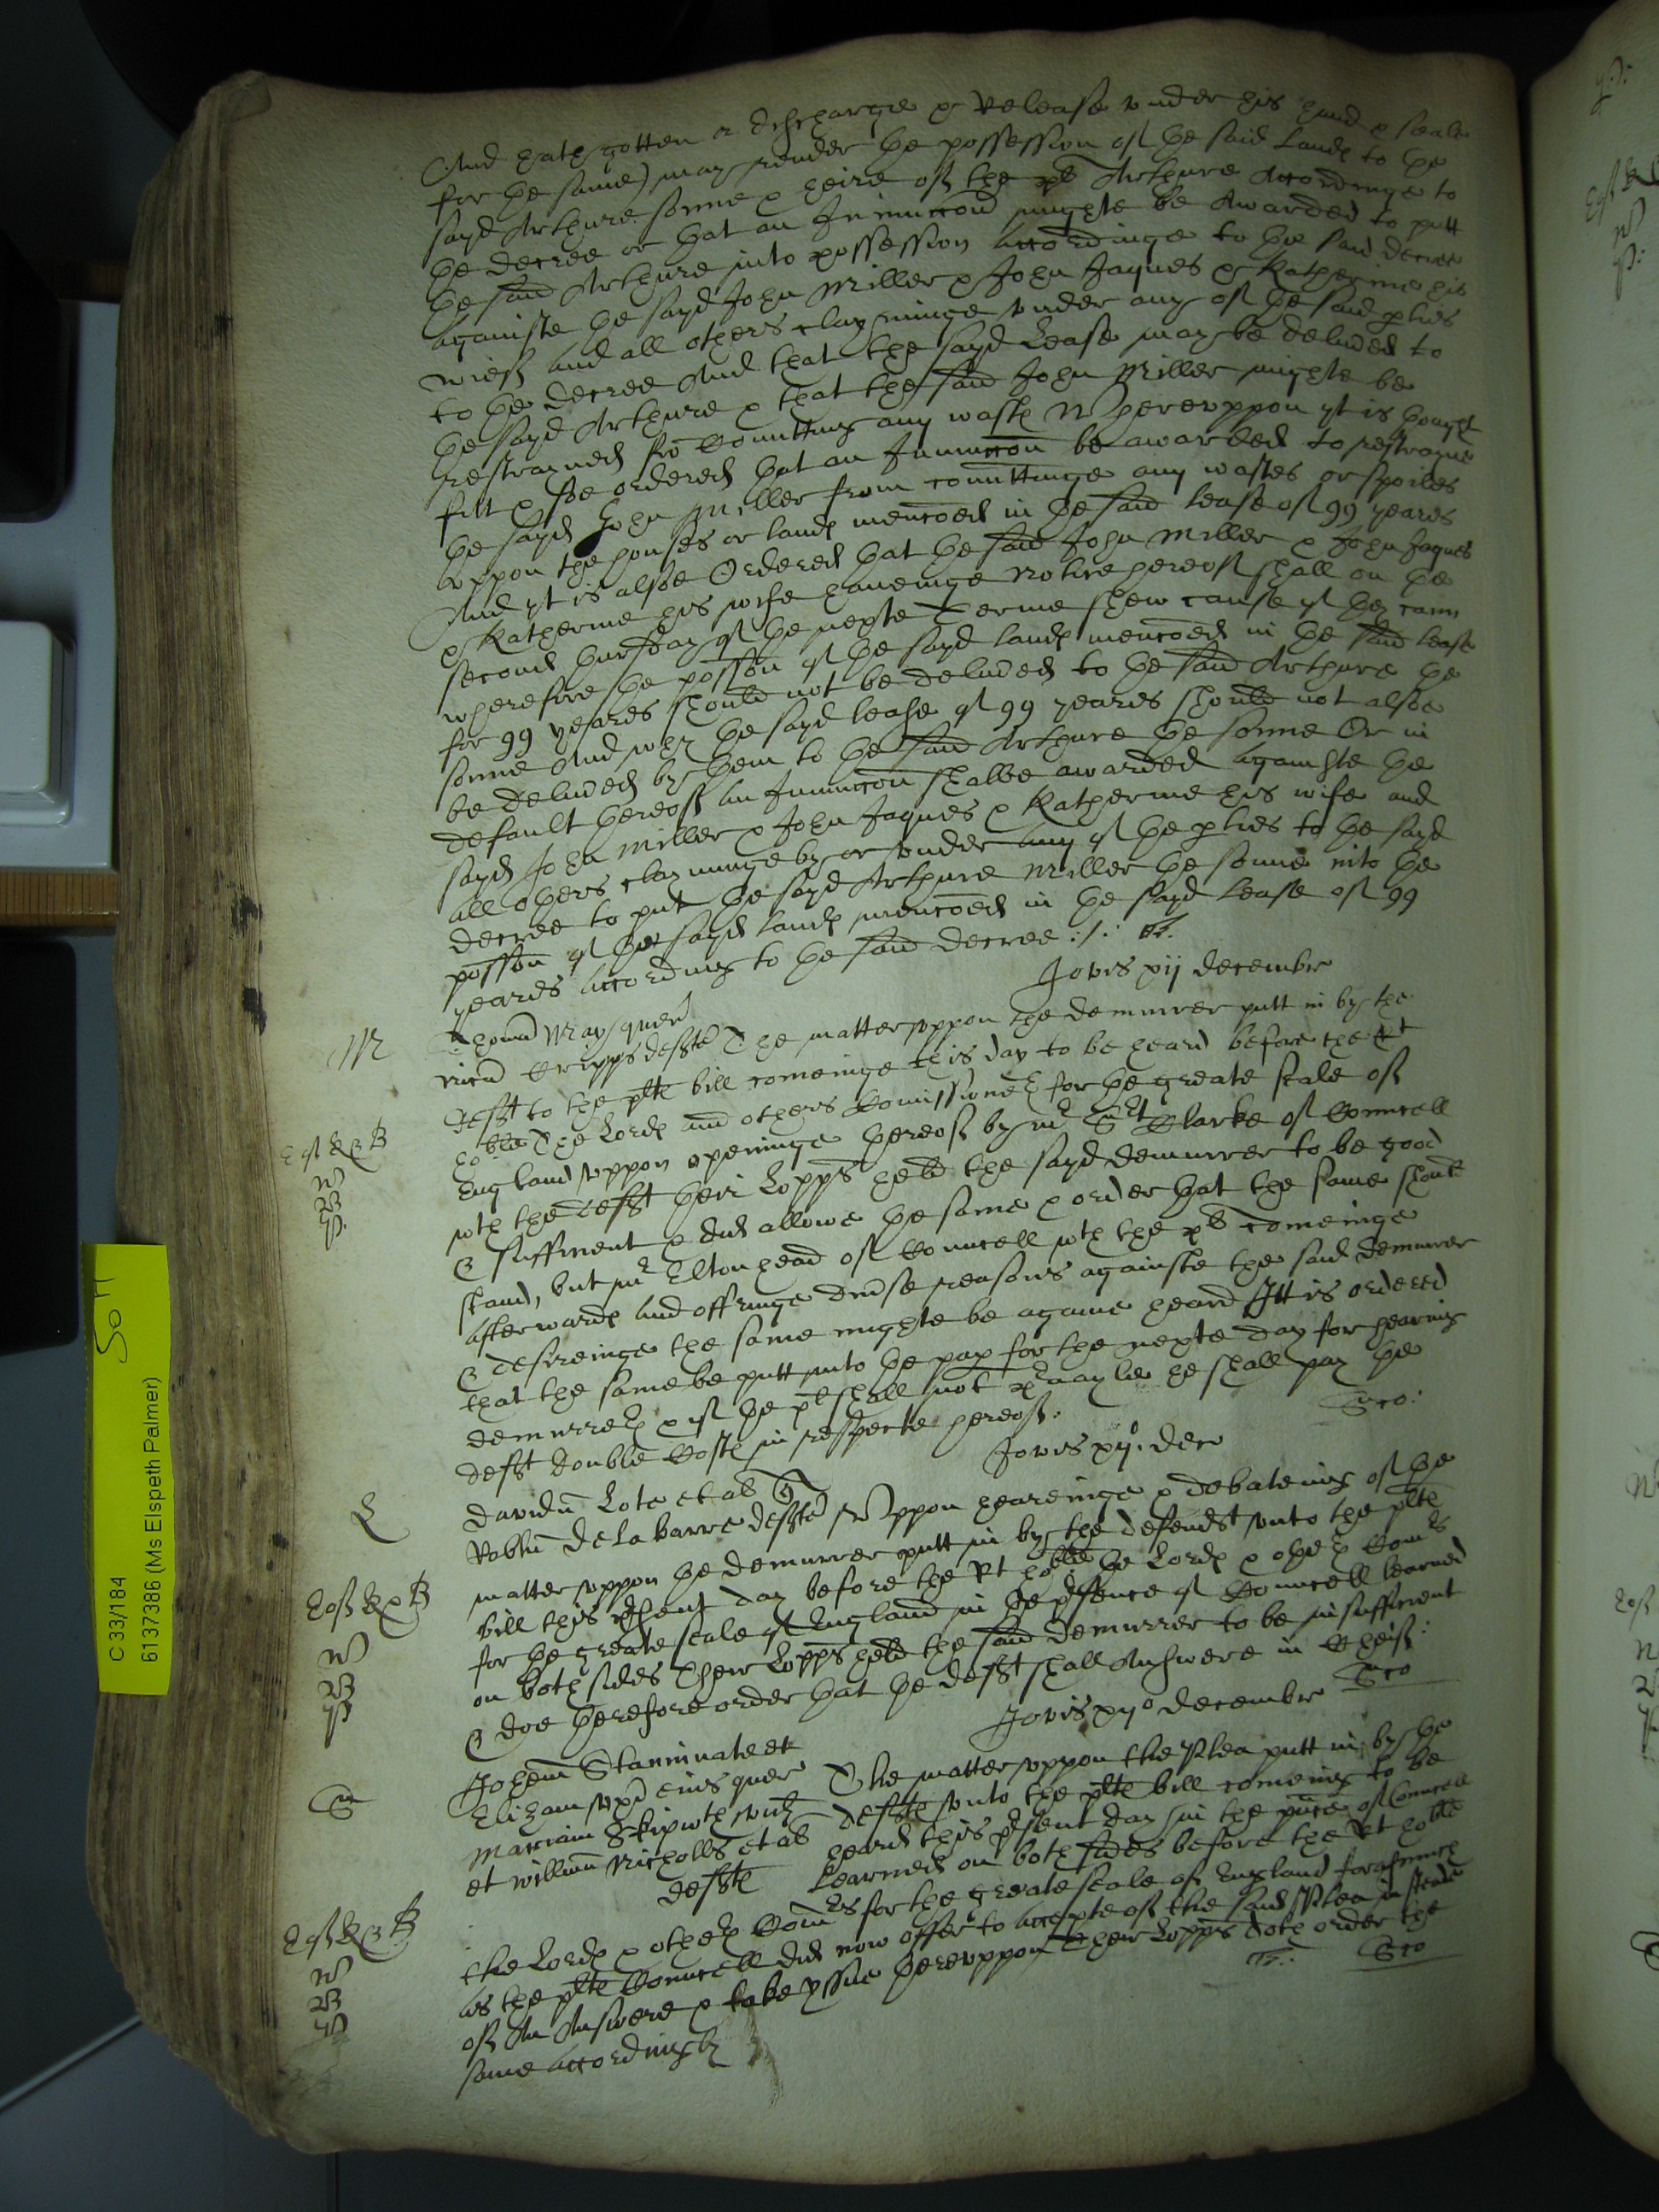 And hath gotten a discharge & Release under his hand & seale
for the same) may render the possession of the said Landes to the
sayd Arthure sonne & heire of the pt Arthure Accordinge to
the decree or that an Iniunccon mighte be Awarded to putt
the said Arthure into possession accordinge to the said decree
againste the sayd John Miller & John Jaques & Katherine his
wief and all others clayminge under any of the said parties
to the decree And that the sayd Lease may be deliu'ed to
the sayd Arthure & that the said John Miller mighte be
restrayned fro Comitting any wast Whereuppon yt is thought
fitt & soe ordered that an Iniunccon be awarded to restrayne
the sayd John Miller from comittinge any wastes or spoiles
uppon the houses or landes menc'oed in the said lease of 99 yeares
And yt is alsoe Ordered that the said John Miller & John Jaques
& Katherine his wife haveinge notice hereof shall on the
second thursday of the nexte Terme shew cause yf they cann
wherefore the poss'on of the sayd landes menc'oed in the said lease
for 99 yeares should not be deliu'ed to the said Arthure the
sonne And why the sayd lease of 99 yeares should not alsoe
be deliu'ed by them to the said Arthure the sonne Or in
default thereof an Iniunccon shalbe awarded againste the
sayd John Miller & John Jaques & Katherine his wife and
all others clayminge by or under any of the parties to the sayd
decree to put the sayd Arthure Miller the sonne into the
poss'on of the sayd landes menc'oed in the sayd Lease of 99
yeares according to the said decree :/:
Jovis xij decembr
M Thomas Way quer
Ricus Cripps defte The matter uppon the demurrer putt in by the
deft to the plte bill comeinge this day to be heard before the Rt
hoble The Lordes and others Comissioners for the greate seale of
England uppon openinge thereof by mr Clarke of Councell
wth the deft their Lopps held the sayd demurrer to be good
& sufficient & did allowe the same & order that the same should
stand, but mr Eltonhead of Councell wth the pt comeinge
afterwardes and offringe diu'se reasons againste the said demurrer
& desireinge the same mighte be againe heard Itt is ordered
that the same be putt into the pap for the nexte day for hearing
demurrers & yf the pt shall not p'vayle he shall pay the
deft double Costes in respecte hereof.
Jovis xijo Dec
L Davidus Lote et al
Robtus De La barre defte Uppon heareinge & debateing of the
matter uppon the demurrer putt in by the defendt unto the plte
bill this p'sent day before the Rt hoble the Lordes & other Com'rs
for the greate seale of England in the p'sence of Councell learned
on both sides Their Lopps held the said demurrer to be insufficient
& doe therefore order that the deft shall Answere in Cheif.
Jovis xijo Decembr
S Johem Staninate et
Elizam uxor eius quer The matter uppon the Plea putt in by the
Mariam Skipwth vid defte unto the plte bill comeing to be
et willmum Nicholls et al heard this p'sent day in the p'nce of Councell
defte Learned on both sides before the Rt hoble
the Lordes & other Com'rs for the greate seale of England forasmuch
as the plte Councell did now offer to accepte of the said Plea in steade
of An Answere & take yssue thereuppon Their Lopps doth order the
same accordingly
C 33/184
6137386 (Ms Elspeth Palmer)